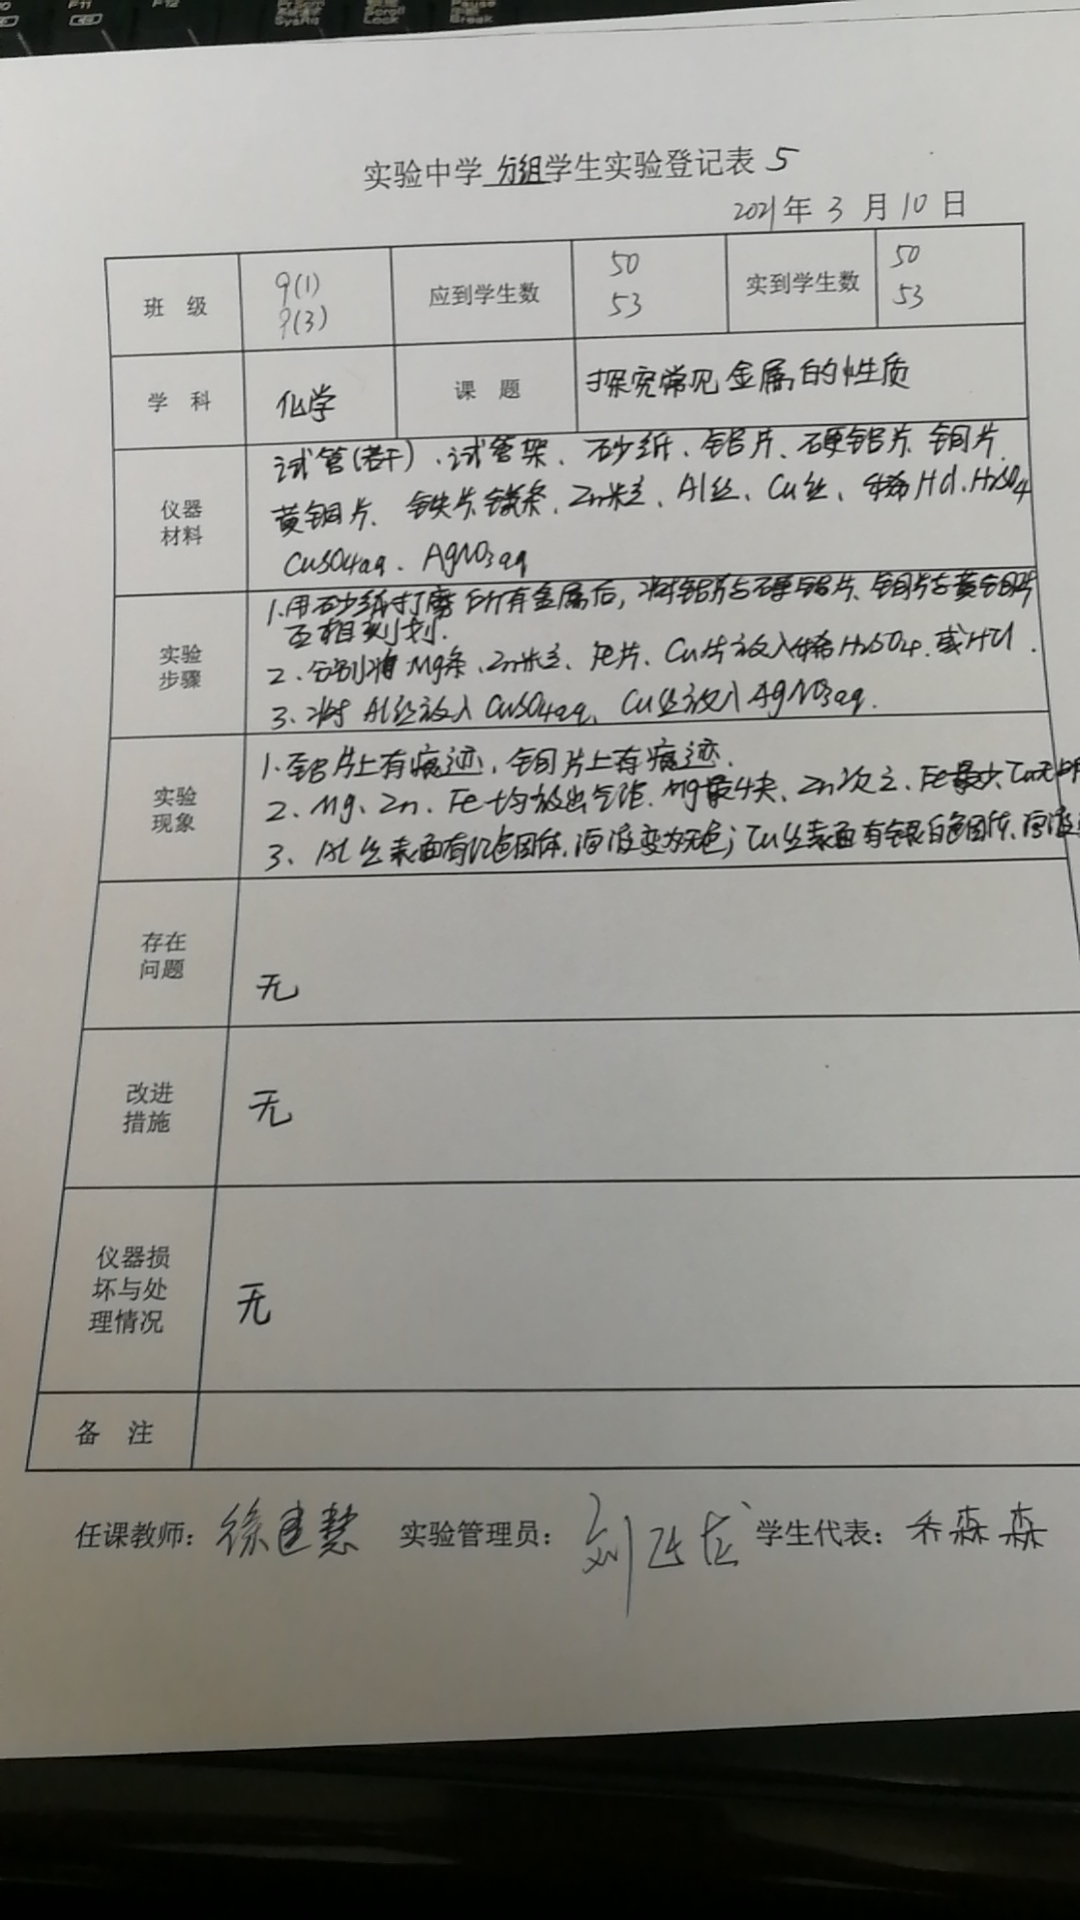 F11 F12 SysRq Scroll Lock Pause Break
实验中学 分组学生实验登记表 5
2021年 3 月 10 日
班 级 9(1) 9(3) 应到学生数 50 53 实到学生数 50 53
学 科 化学 课 题 探究常见金属的性质
仪器材料
试管(若干)、试管架、砂纸、铝片、硬铝片、铜片、
黄铜片、铁片、镁条、Zn粒、Al丝、Cu丝、稀HCl、H2SO4
CuSO4aq、AgNO3aq
实验步骤
1.用砂纸打磨所有金属后,将铝片与硬铝片、铜片与黄铜片
互相刻划.
2、分别将Mg条、Zn粒、Fe片、Cu片放入稀H2SO4.或HCl.
3、将Al丝放入CuSO4aq、Cu丝放入AgNO3aq.
实验现象
1.铝片上有痕迹,铜片上有痕迹.
2、Mg、Zn、Fe均放出气泡.Mg最快、Zn次之、Fe最少、Cu无
3、Al丝表面有红色固体,溶液变为无色;Cu丝表面有银白色固体,溶液
存在问题 无
改进措施 无
仪器损坏与处理情况 无
备 注
任课教师: 徐建慧 实验管理员: 刘 学生代表: 乔森森